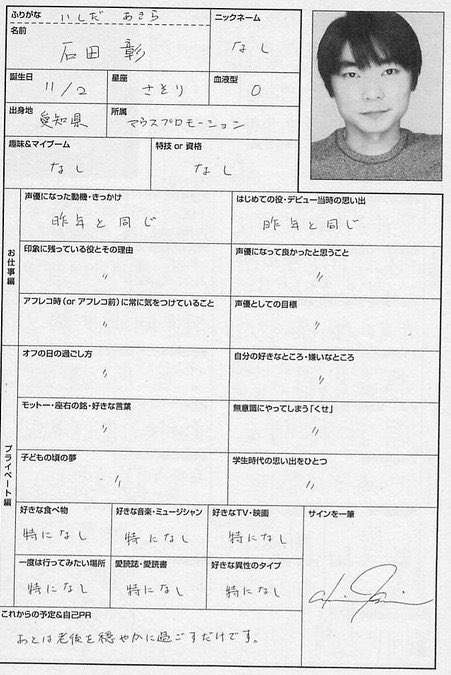 ふりがな いしだ あきら
ニックネーム
なし
名前
石田 彰
誕生日
11/2
星座
さそり
血液型
O
出身地
愛知県
所属
マウスプロモーション
趣味&マイブーム
なし
特技 or 資格
なし
お仕事編
声優になった動機・きっかけ
昨年と同じ
はじめての役・デビュー当時の思い出
昨年と同じ
印象に残っている役とその理由
〃
声優になって良かったと思うこと
〃
アフレコ時(or アフレコ前)に常に気をつけていること
〃
声優としての目標
〃
プライベート編
オフの日の過ごし方
〃
自分の好きなところ・嫌いなところ
〃
モットー・座右の銘・好きな言葉
〃
無意識にやってしまう「くせ」
〃
子どもの頃の夢
〃
学生時代の思い出をひとつ
〃
好きな食べ物
特になし
好きな音楽・ミュージシャン
特になし
好きなTV・映画
特になし
サインを一筆
一度は行ってみたい場所
特になし
愛読誌・愛読書
特になし
好きな異性のタイプ
特になし
これからの予定&自己PR
あとは老後を穏やかに過ごすだけです。